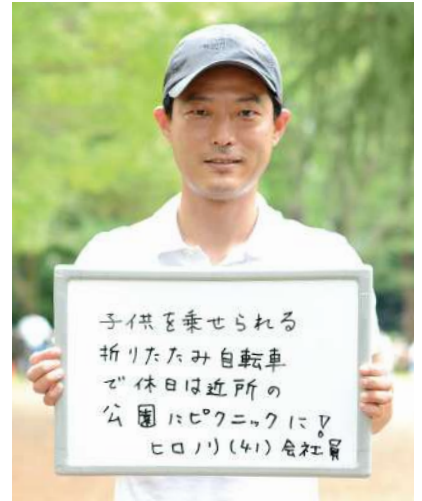 子供を乗せられる
折りたたみ自転車
で休日は近所の
公園にピクニックに!
ヒロノリ(41)会社員